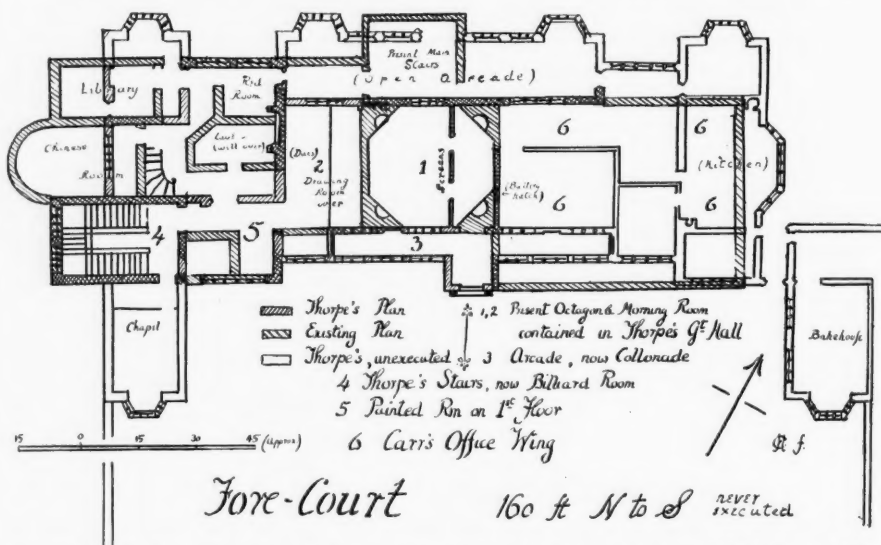 Present Main
Stairs
(Open Arcade)
Library
Red
Room
Chinese
Room
(Dais)
2
Drawing
Room
over
1
Screens
(Butlery
hatch)
6
6
6
6
(Kitchen)
4
5
3
Chapil
Bakehouse
Thorpe's Plan
Existing Plan
Thorpe's, unexecuted
1,2 Present Octagon & Morning Room
contained in Thorpe's Gt. Hall
3 Arcade, now Collonade
4 Thorpe's Stairs, now Billiard Room
5 Painted Rm on 1st Floor
6 Carr's Office Wing
15 0 15 30 45 (Approx)
Fore-Court
160 ft N to S never
executed